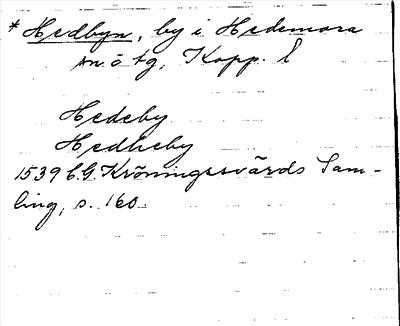 * Hedbyn, by i Hedemora
sn o tg, Kopp. l
Hedeby
Hedheby
1539 C.G. Kröningssvärds Sam-
ling, s. 160.